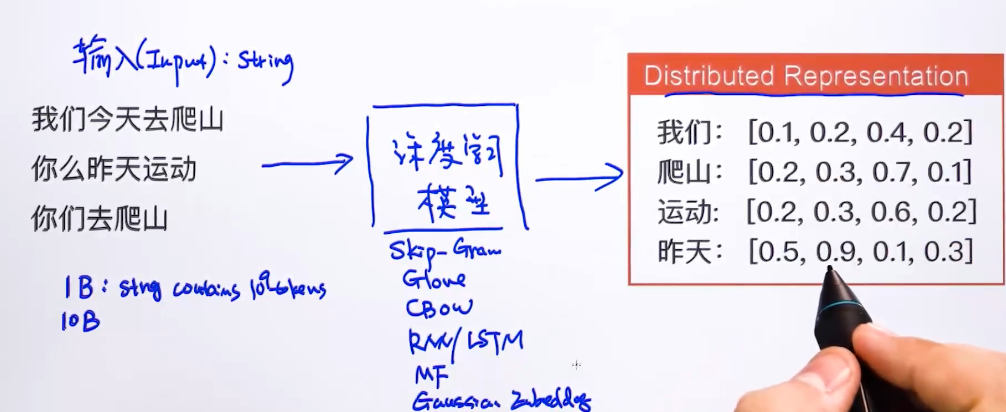 输入(Input): String
我们今天去爬山
你么昨天运动
你们去爬山
1B: string contains 10^9 tokens
10B
深度学习
模型
Skip-Gram
Glove
CBOW
RNN/LSTM
MF
Gaussian Embedding
Distributed Representation
我们: [0.1, 0.2, 0.4, 0.2]
爬山: [0.2, 0.3, 0.7, 0.1]
运动: [0.2, 0.3, 0.6, 0.2]
昨天: [0.5, 0.9, 0.1, 0.3]